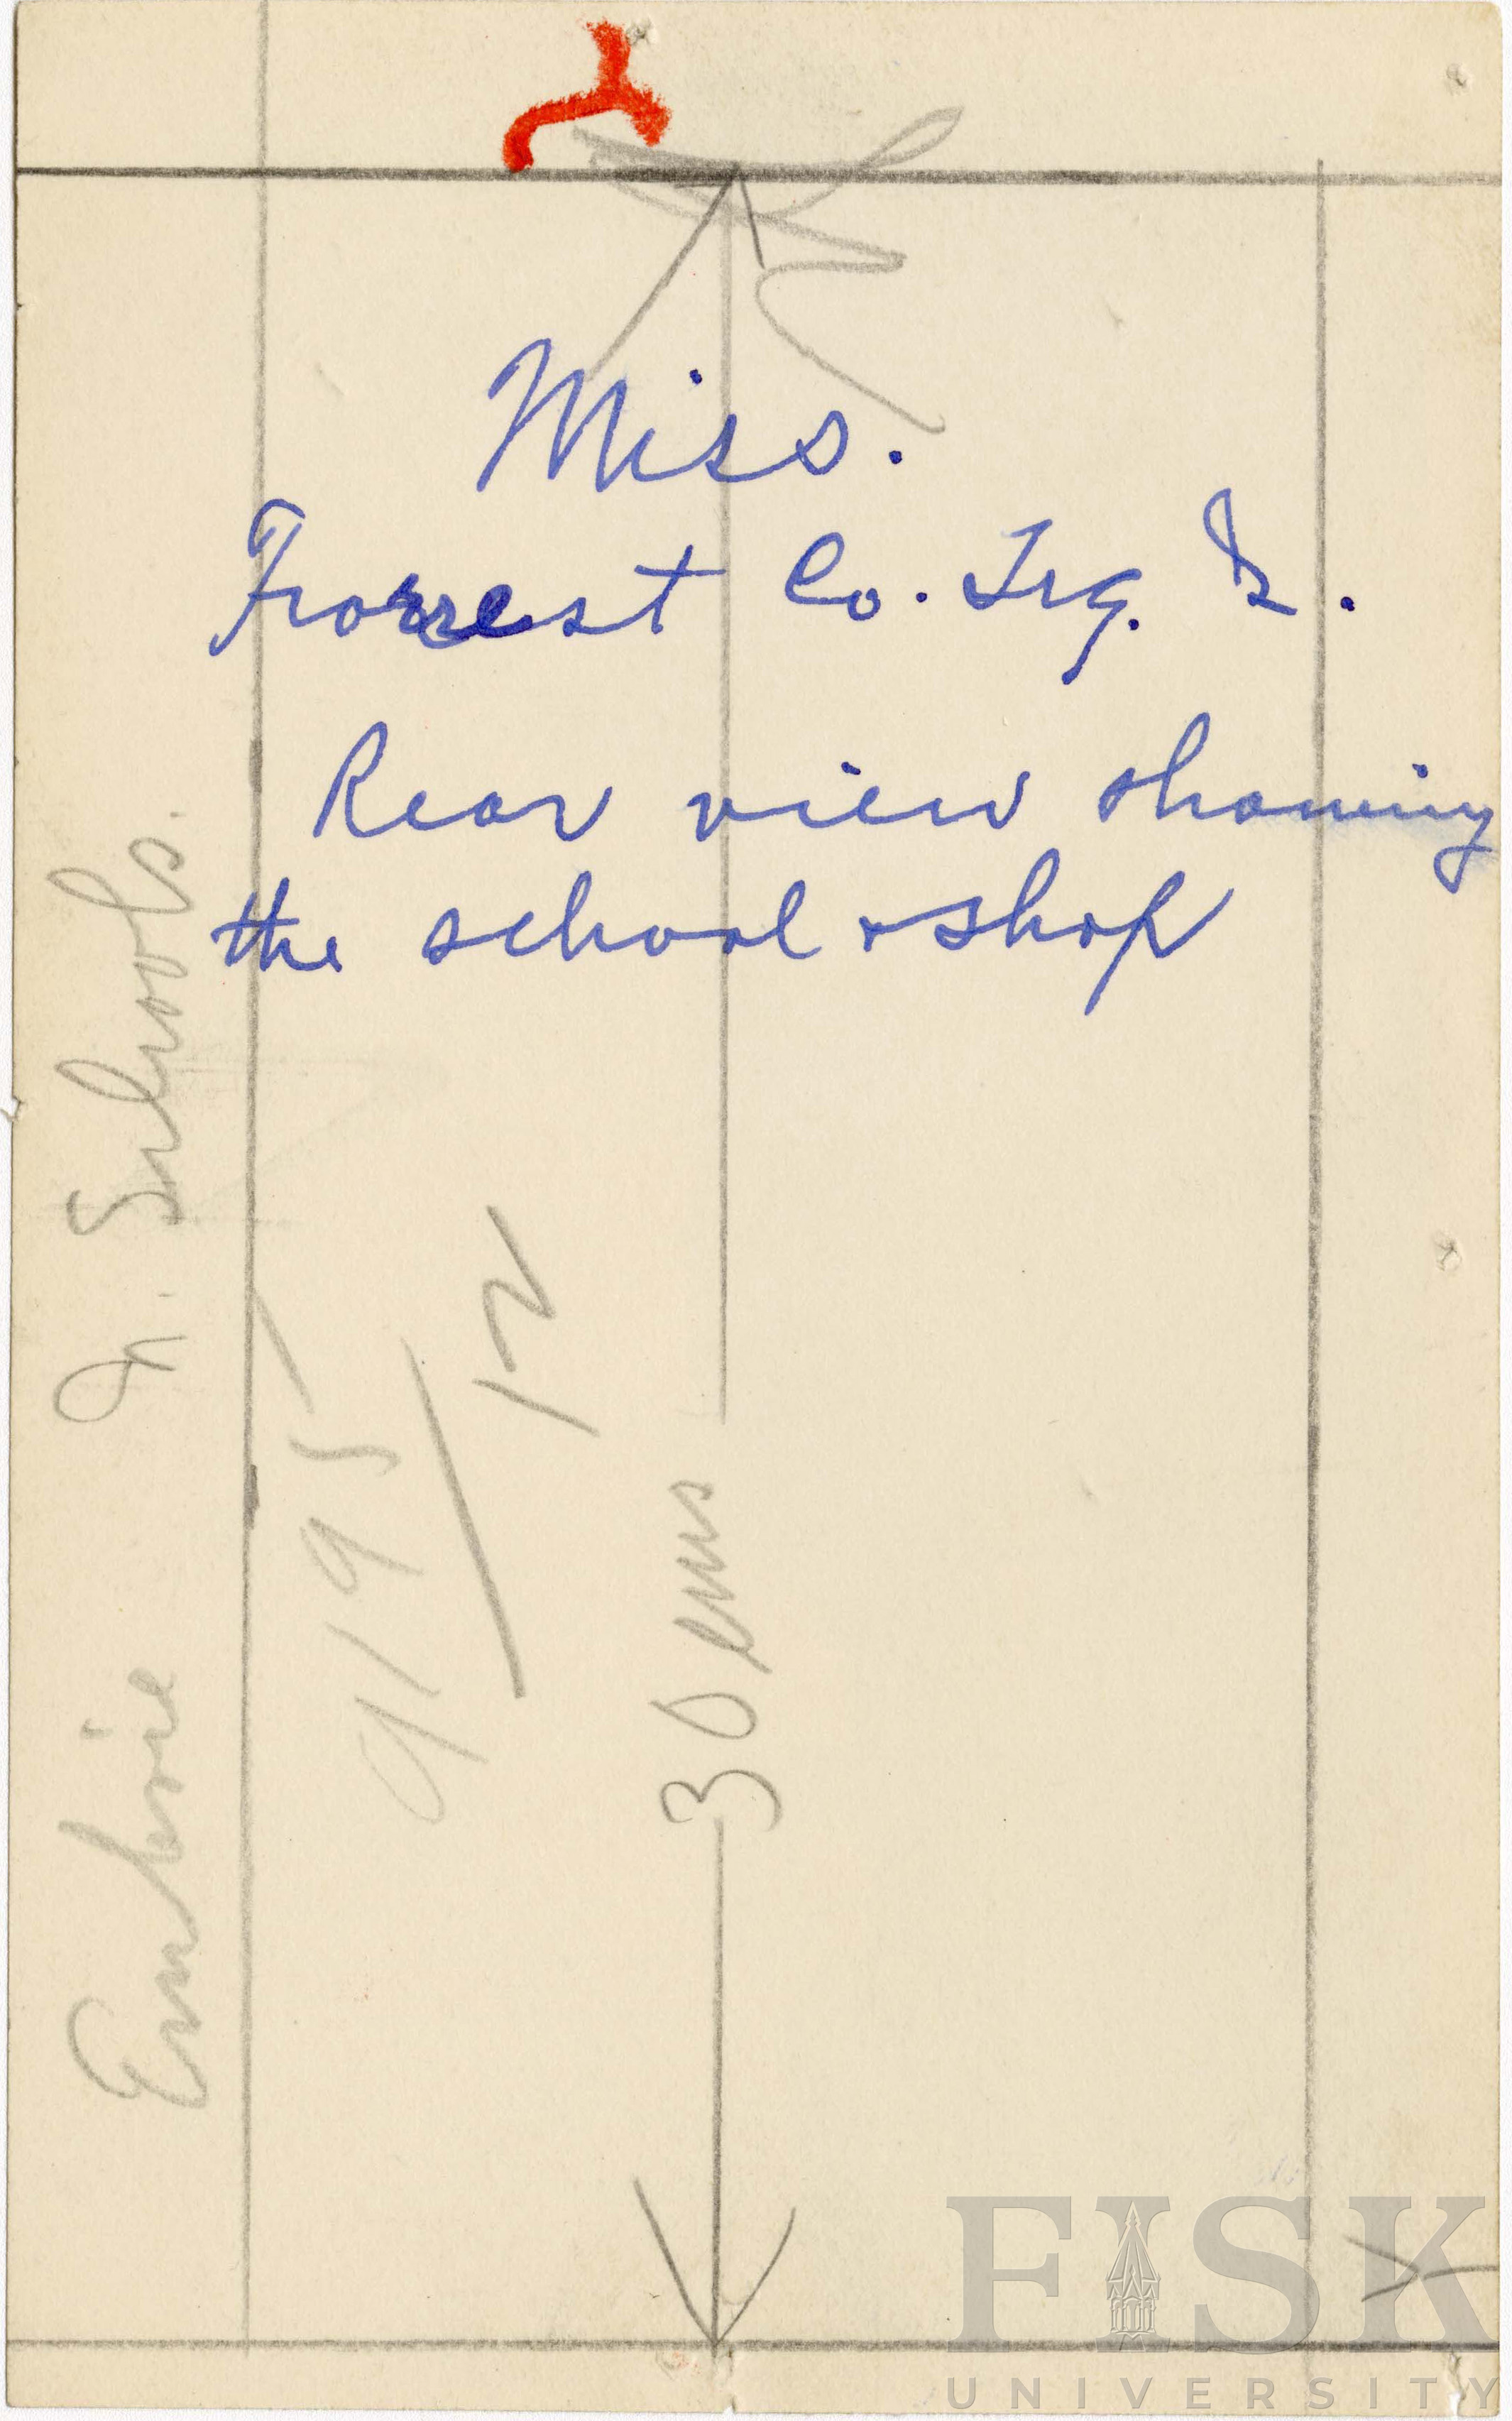 Miss.
Forrest Co. Trg. S.
Rear view showing
the school & shop
Embrie Jr. Schools.
9195
/12
30 ems
FISK
UNIVERSITY